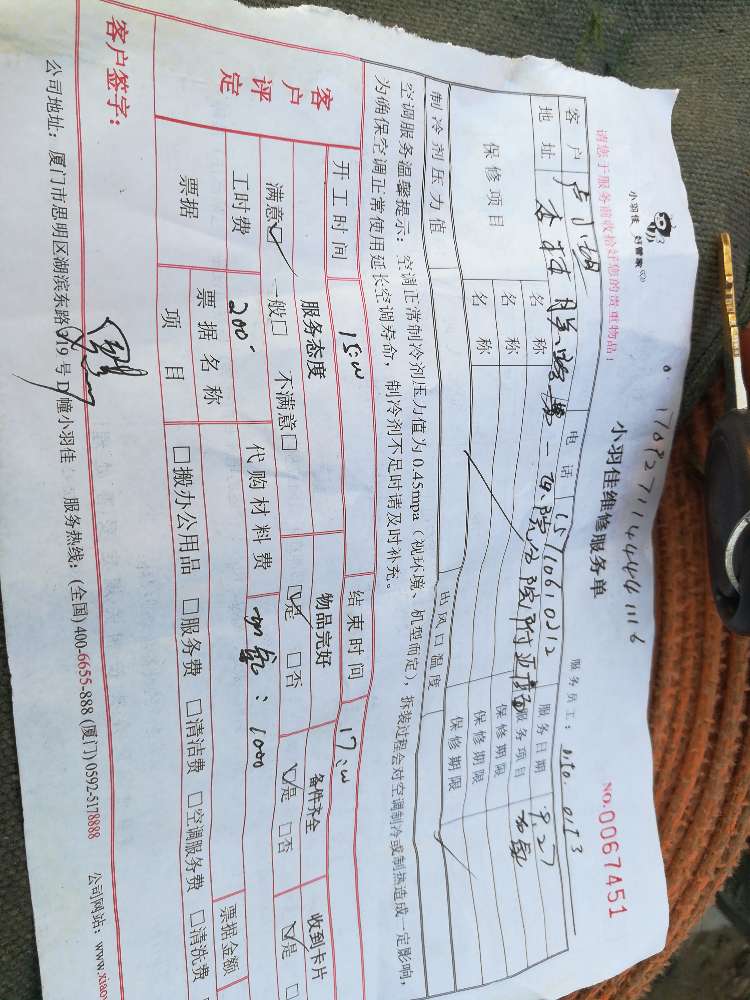 1709271144441116
小羽佳 好管家
小羽佳维修服务单
NO.0067451
请您于服务前收拾好您的贵重物品!
服务员工: 010. 013
客户 电话 15110610212 服务日期 9.27
地址 杏林 第一医院分院附近 服务项目 加氟
保修项目 名称 保修期限
名称 保修期限
名称 保修期限
制冷剂压力值 出风口温度
空调服务温馨提示: 空调正常制冷剂压力值为0.45mpa(视环境、机型而定), 拆装过程会对空调制冷或制热造成一定影响,
为确保空调正常使用延长空调寿命, 制冷剂不足时请及时补充。
开工时间 15:00 结束时间 17:00
客户评定 服务态度 物品完好 备件齐全 收到卡片
满意☑ 一般□ 不满意□ ☑是 □否 ☑是 □否 ☑是 □
工时费 200 代购材料费 加氟: 1000
票据 票据名称 票据金额
项目 □搬办公用品 □服务费 □清洁费 □空调服务费 □清洗费
客户签字:
公司地址: 厦门市思明区湖滨东路619号D幢小羽佳 服务热线: (全国) 400-6655-888 (厦门) 0592-5178888 公司网站: www.xiao